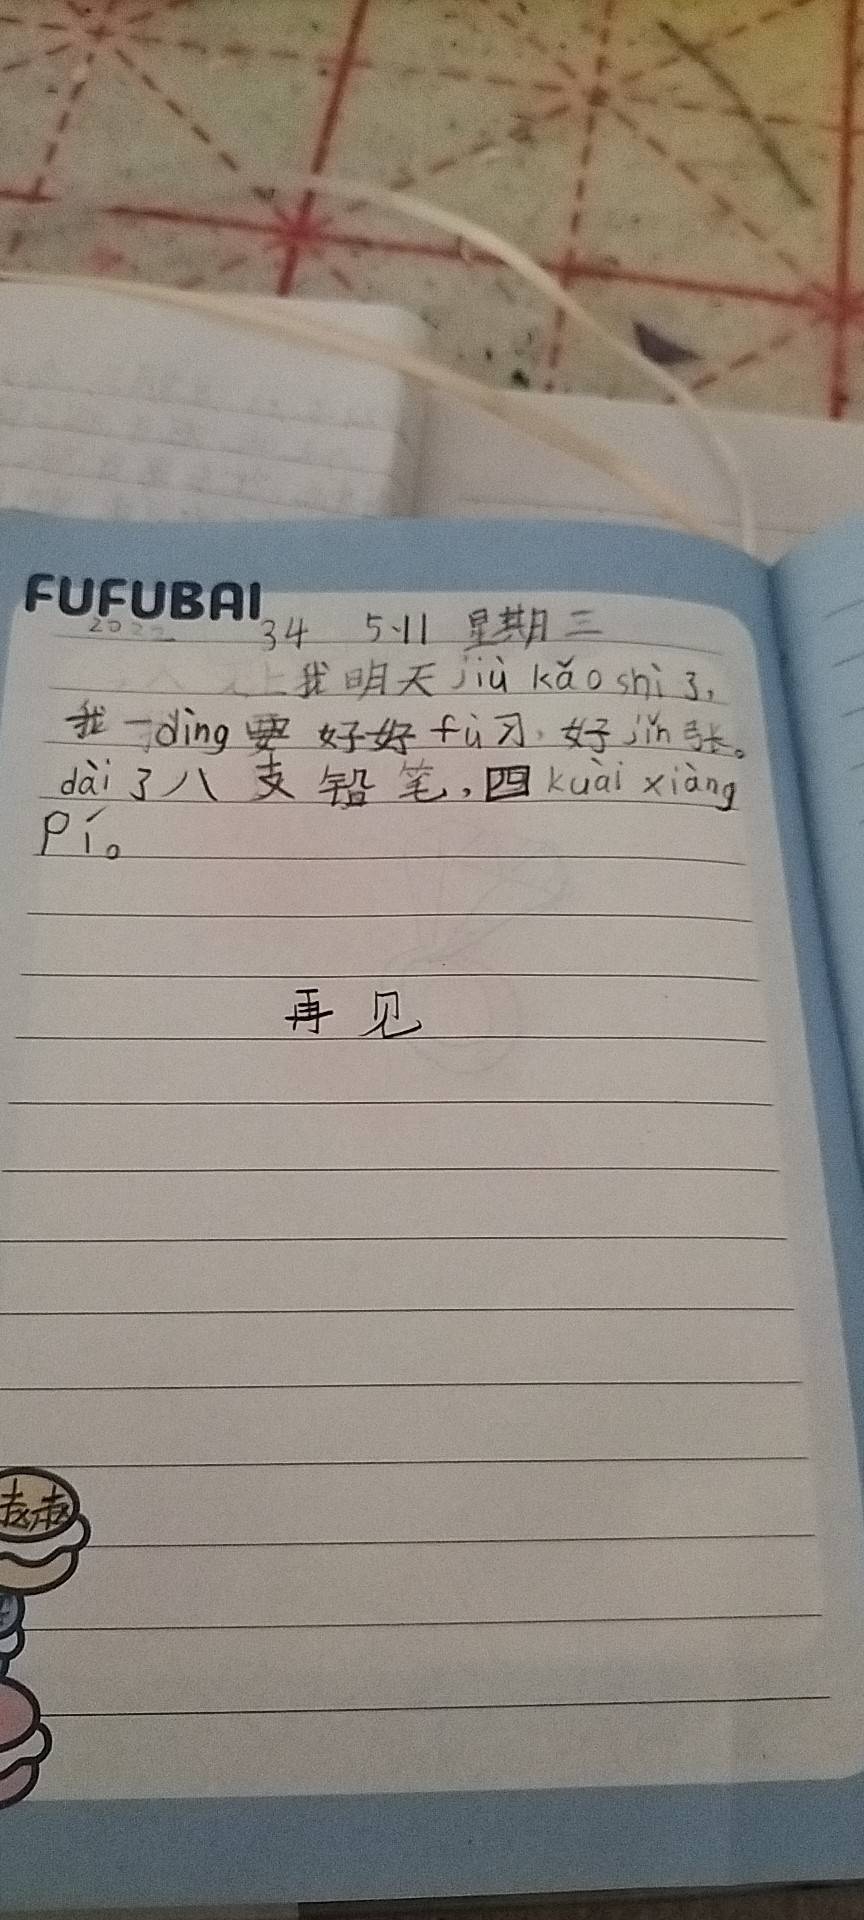 FUFUBAI
2022 34 5.11 星期三
我明天jiù kǎo shì了,
我一dìng要好好fù习,好jǐn张。
dài了八支铅笔,四kuài xiàng
pí。
再见